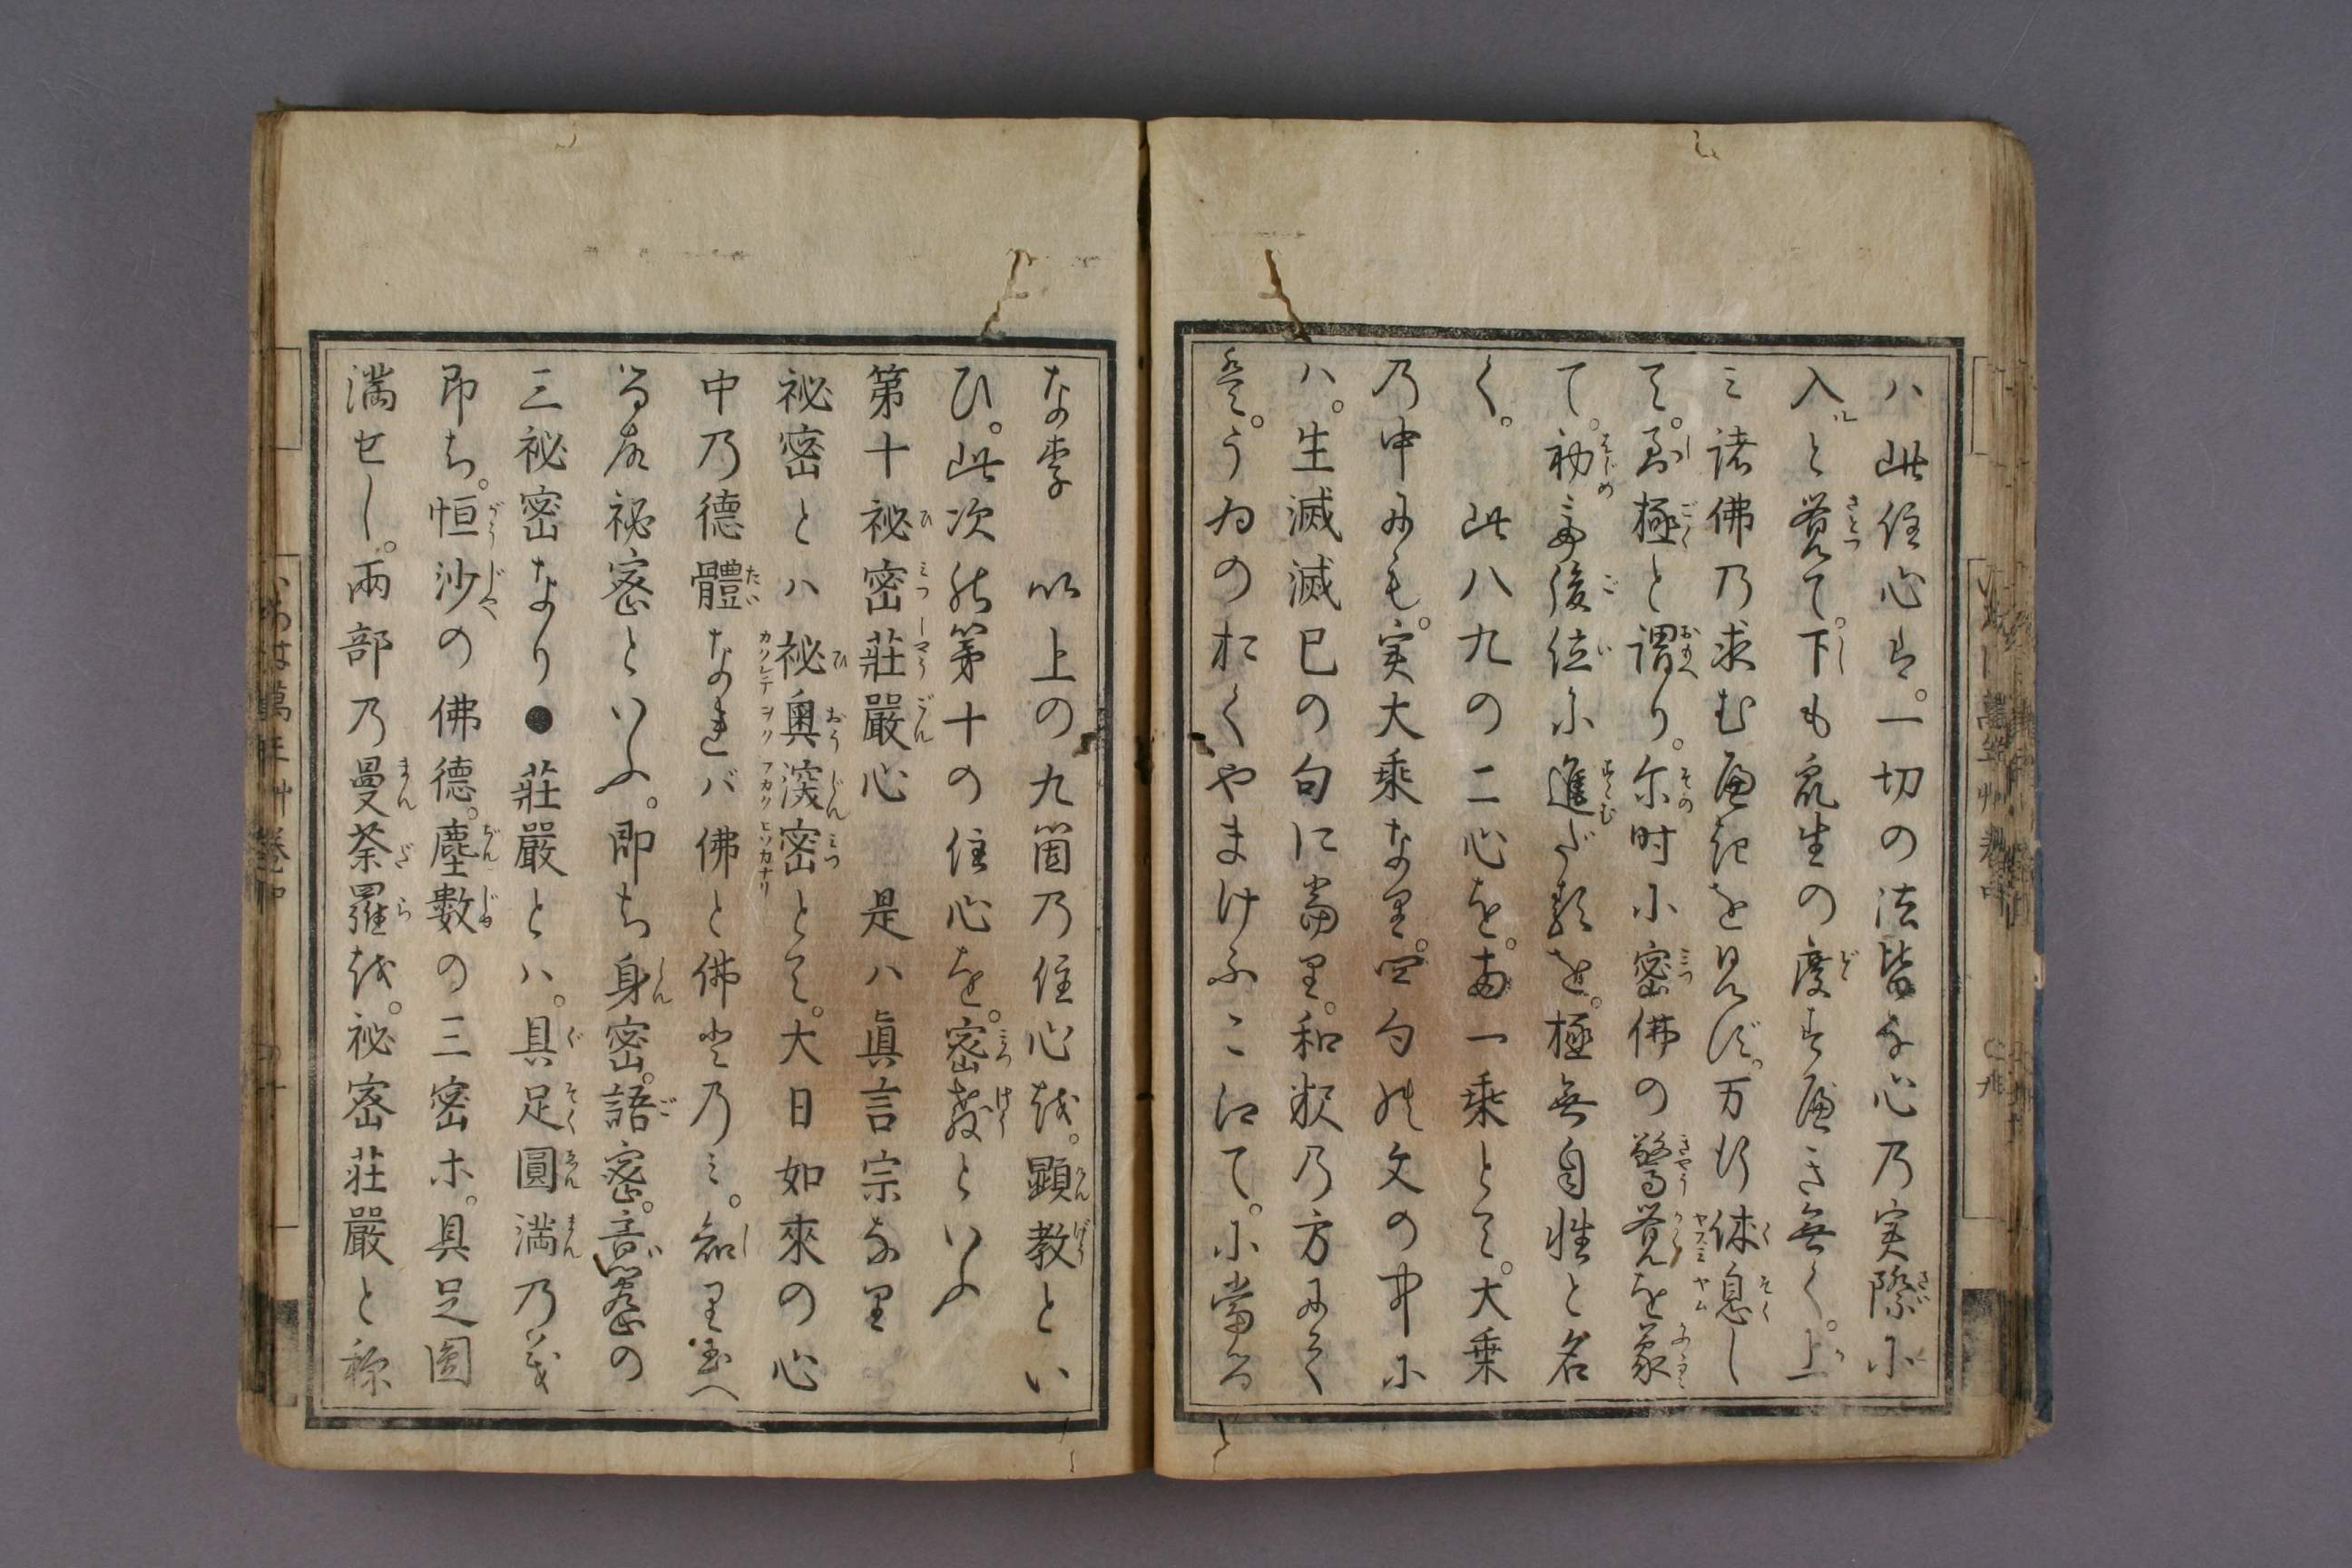 ハ此住心は。一切の法皆な心乃実際に
入ルと覚て。下も衆生の度すべき無く。上
ミ諸佛乃求むべきを見ず。万行休息し
て。至極と謂り。尓時に密佛の驚覚を蒙
て。初て後位に進だ釈を。極無自性と名
く。 此八九の二心を。一乗とて。大乗
乃中にも。実大乗なり。四句の文の中に
ハ。生滅滅已の句に當り。和歌乃方にて
是。うゐのおくやまけふこえて。に當る
なり 以上の九箇乃住心を。顕教とい
ひ。此次の第十の住心を。密教といふ
第十祕密荘嚴心 是ハ眞言宗なり
祕密とハ祕奥深密とて。大日如來の心
中乃德體なれバ佛と佛と乃ミ。知り玉へ
る故祕密といふ。即ち身密。語密。意密の
三祕密なり●荘嚴とハ。具足圓満乃義
即ち。恒沙の佛德。塵數の三密ホ。具足圓
満せし。兩部乃曼荼羅を。祕密荘嚴と称